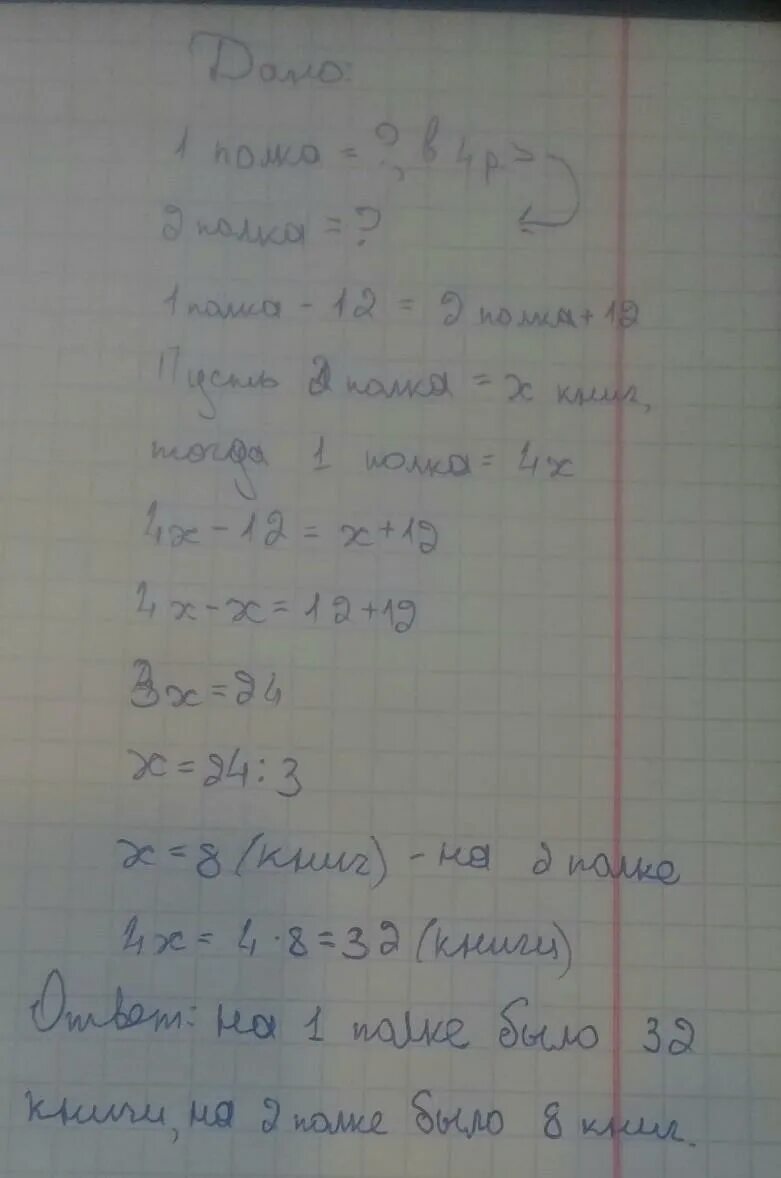 Дано:
1 полка = ?, в 4 р >
2 полка = ?
1 полка - 12 = 2 полка + 12
Пусть 2 полка = x книг,
тогда 1 полка = 4x
4x - 12 = x + 12
4x - x = 12 + 12
3x = 24
x = 24 : 3
x = 8 (книг) - на 2 полке
4x = 4 · 8 = 32 (книги)
Ответ: на 1 полке было 32
книги, на 2 полке было 8 книг.